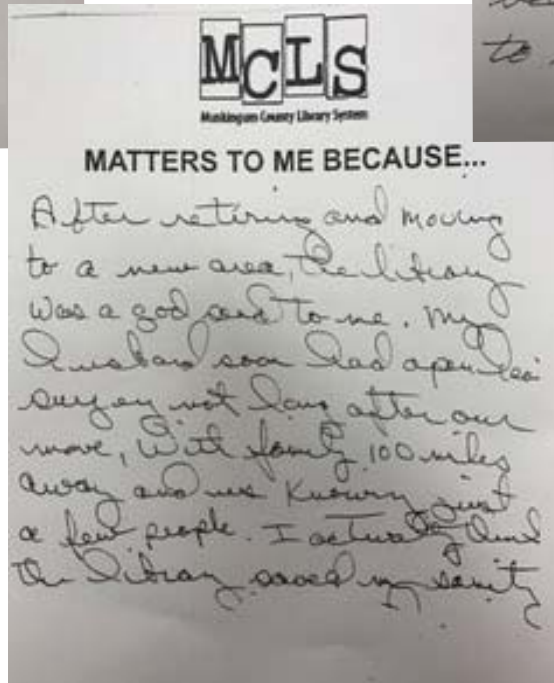 to
MCLS
Muskingum County Library System
MATTERS TO ME BECAUSE...
After retiring and moving
to a new area, the library
was a god send to me. My
husband soon had open
surgery not long after our
move, With family 100 miles
away and me knowing just
a few people. I actually
the library saved my sanity